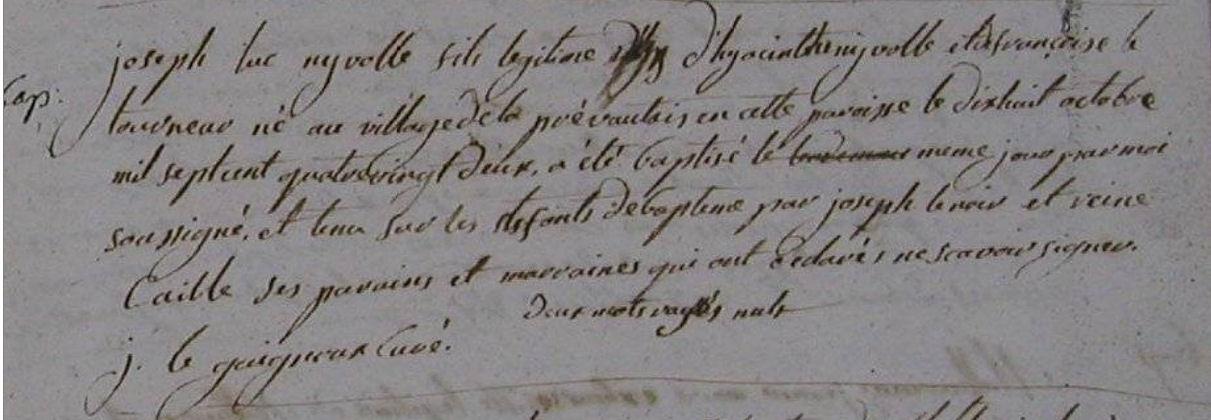 Bap:
joseph luc nyvolle fils legitime d'hyacinthe nyvolle et de françoise le
tourneur né au village de la prévautais en cette paroisse le dixhuit octobre
mil septcent quatrevingt deux, a été baptisé le lendemain meme jour par moi
soussigné, et tenu sur les fonts de bapteme par joseph lenoir et reine
Caille ses parains et marraines qui ont déclarés ne scavoir signer.
deux mots rayés nuls
j. le gaigneux Curé.